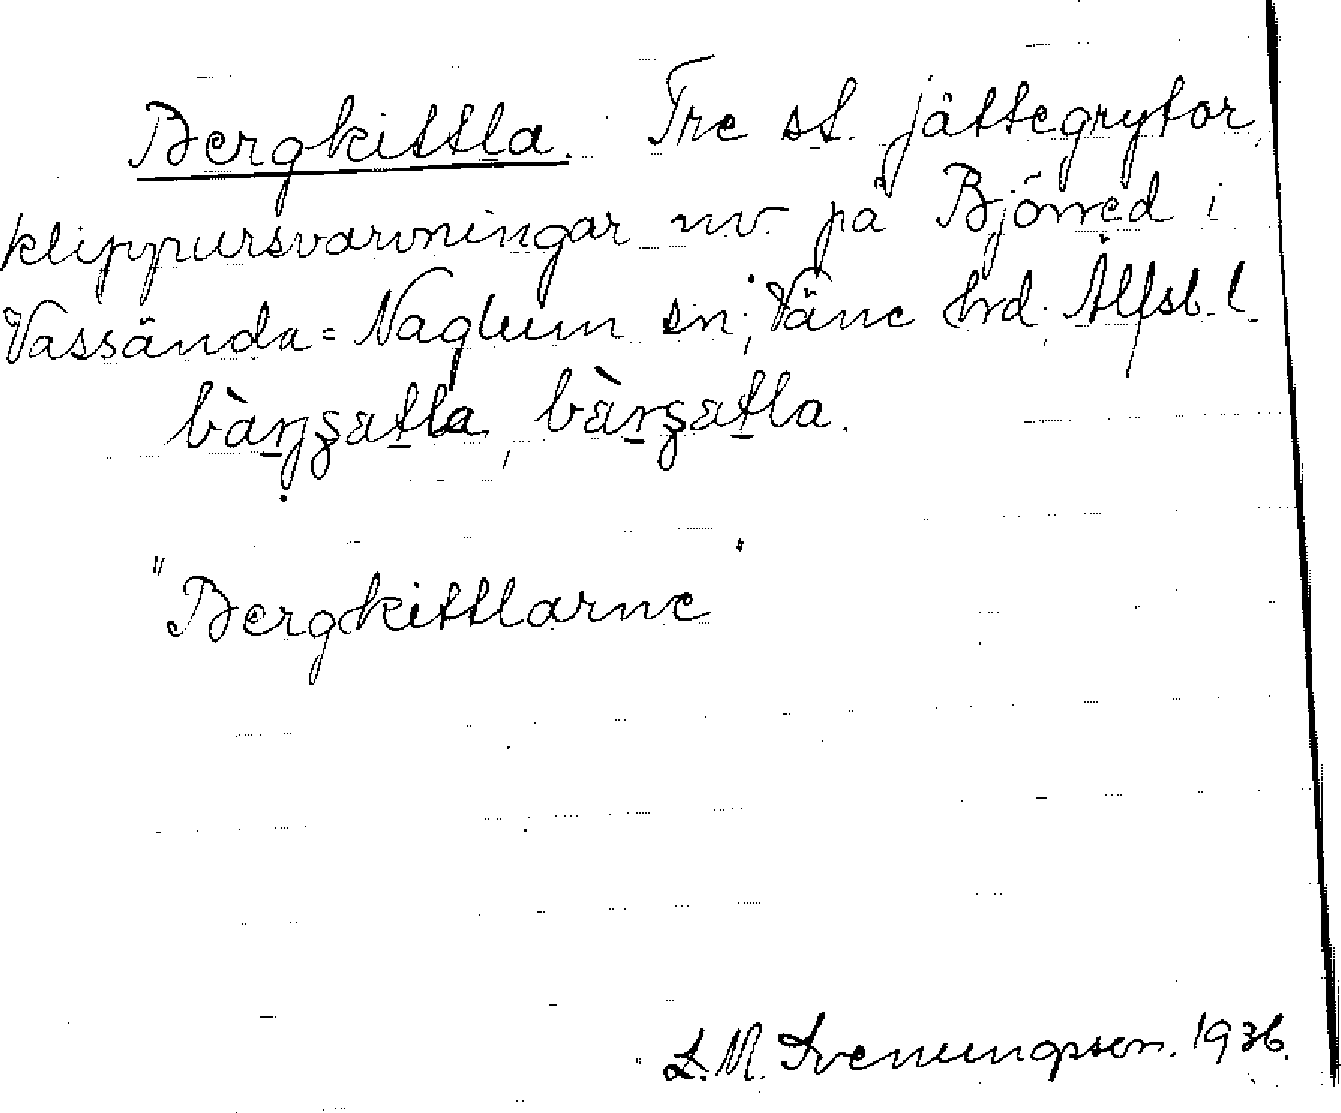 Bergkittla. Tre st. jättegrytor,
klippursvarvningar nv. på Björred i
Vassända=Naglum sn; Väne hrd. Älfsb. l.
"Bergkittlarne"
L.M. Svenungsson. 1936.